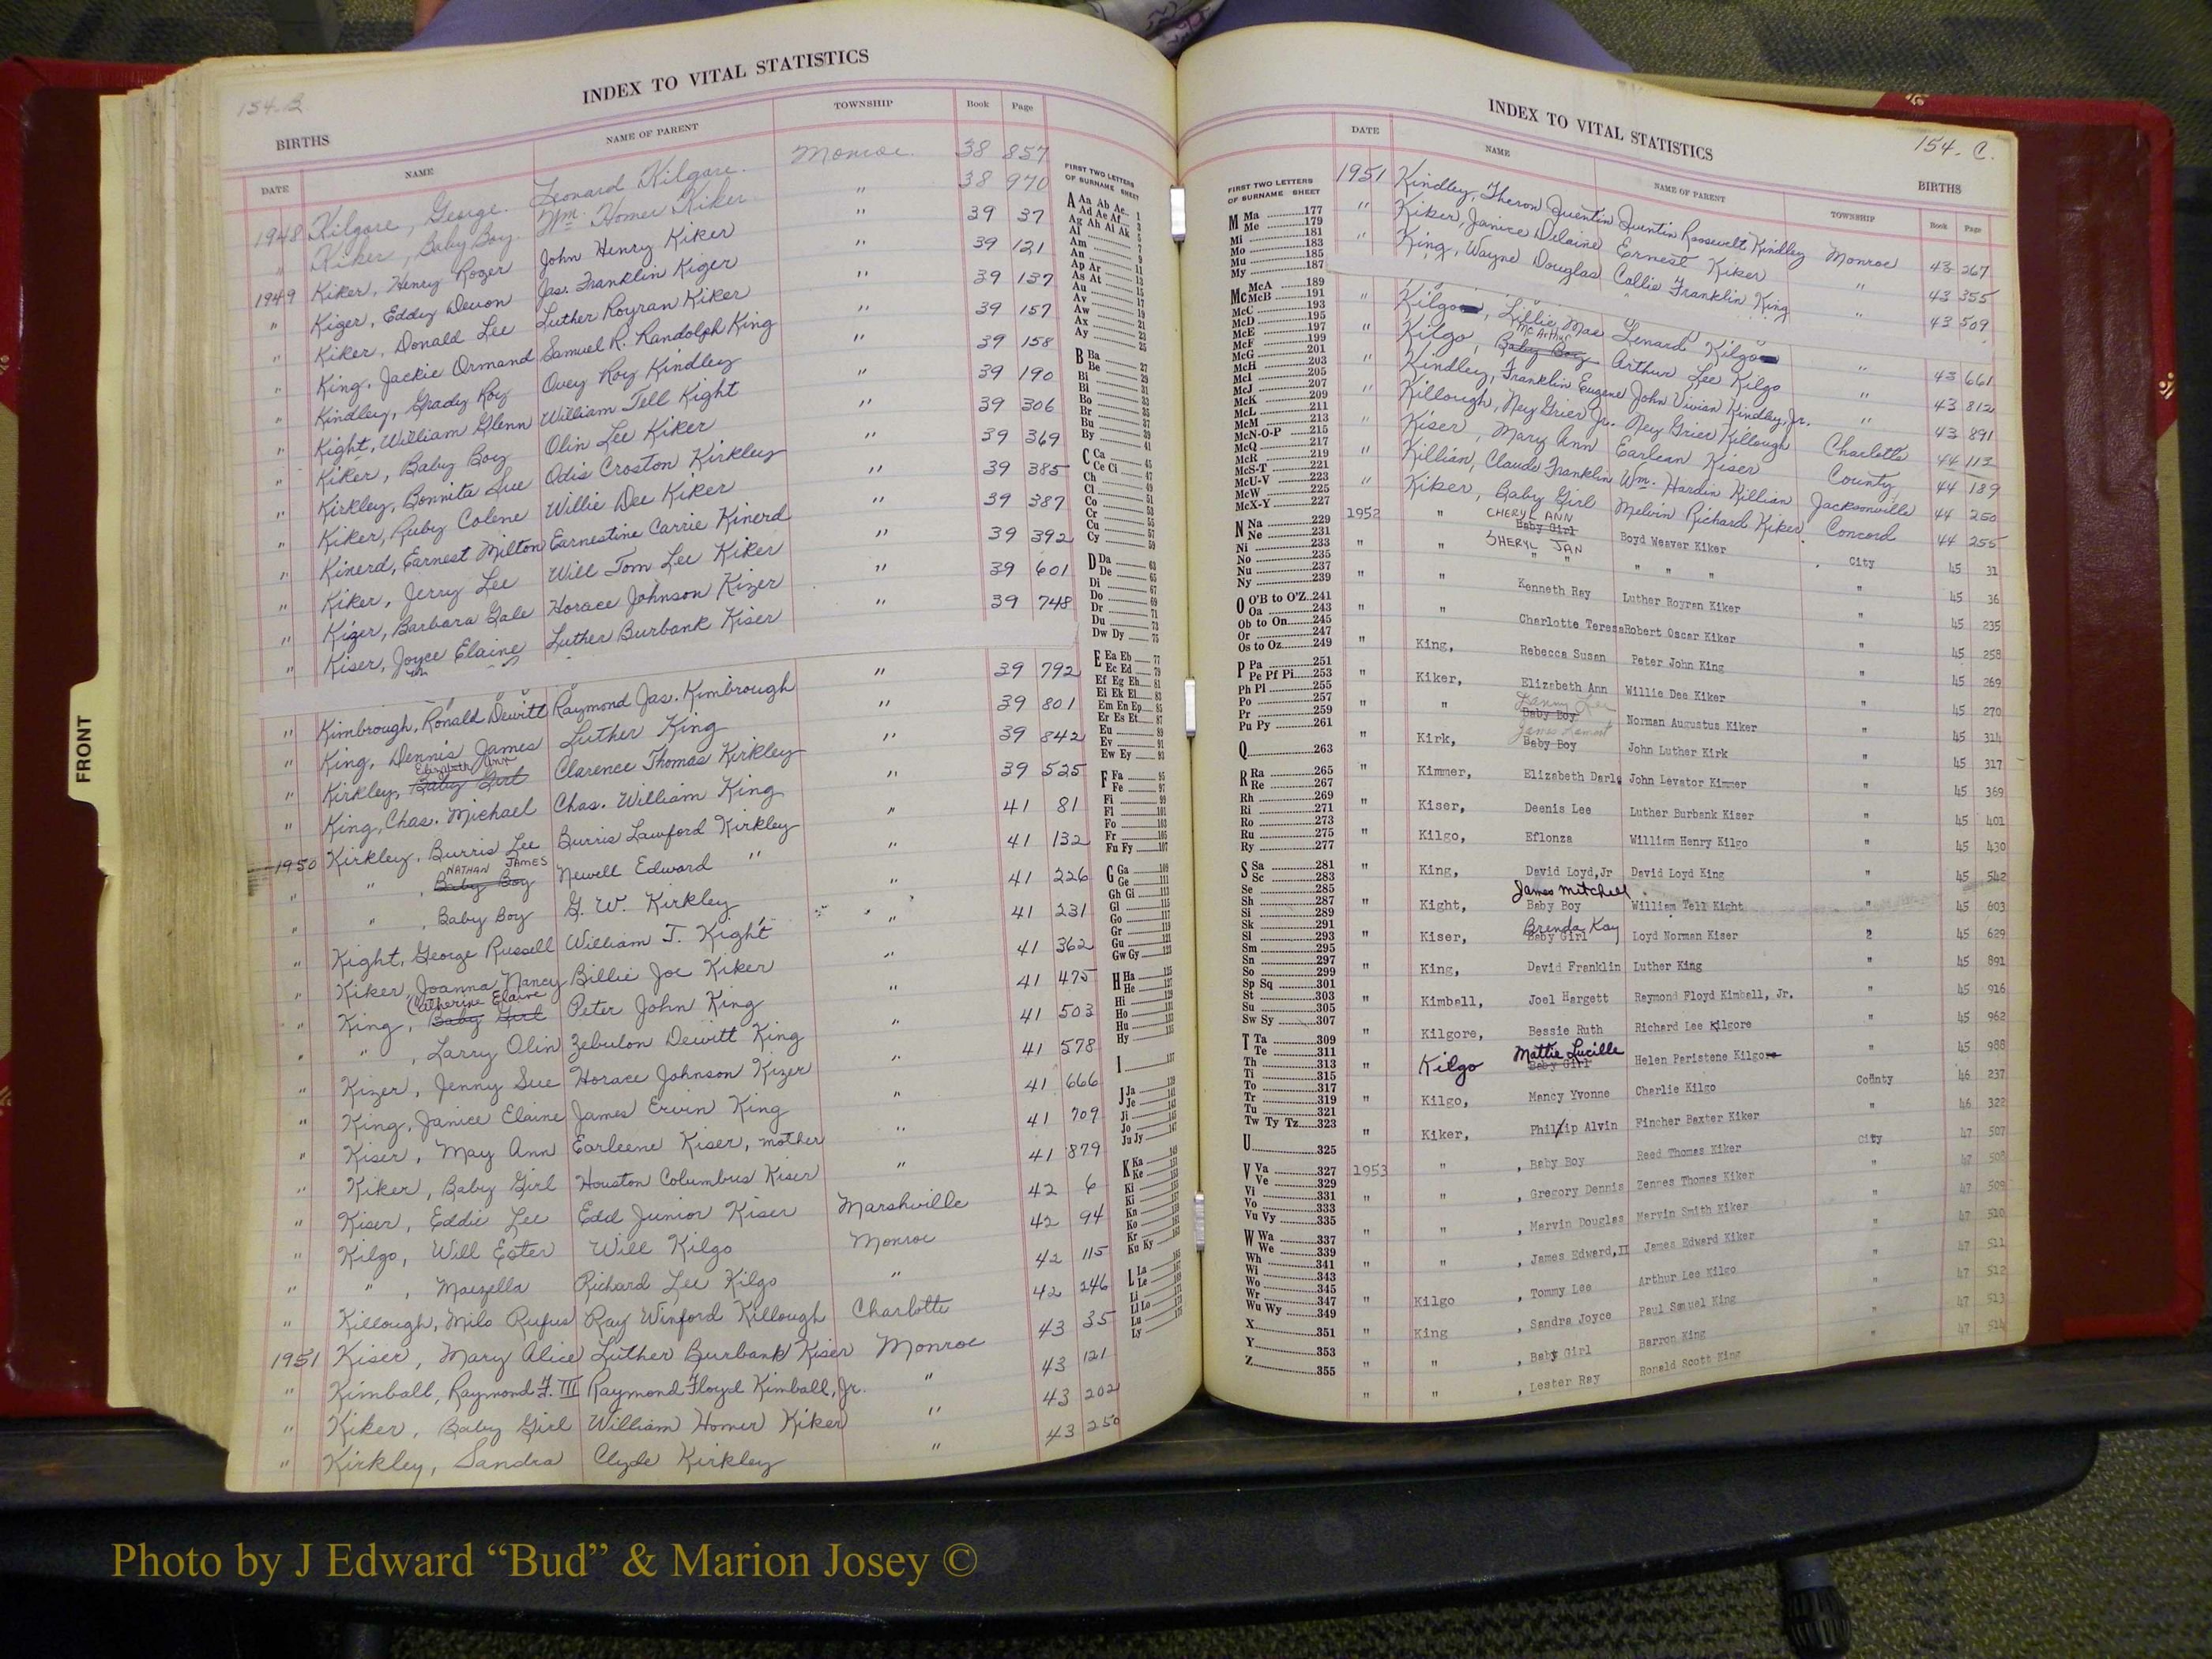 154-B
INDEX TO VITAL STATISTICS
BIRTHS
DATE NAME NAME OF PARENT TOWNSHIP Book Page
1948 Kilgore, George. Leonard Kilgore. Monroe. 38 857
" Kiker, Baby Boy. Wm. Homer Kiker " 38 970
1949 Kiker, Henry Roger John Henry Kiker " 39 37
" Kiger, Eddy Devon Jas. Franklin Kiger " 39 121
" Kiker, Donald Lee Luther Royran Kiker " 39 137
" King, Jackie Ormand Samuel R. Randolph King " 39 157
" Kindley, Grady Roy Ovey Roy Kindley " 39 158
" Kight, William Glenn William Tell Kight " 39 190
" Kiker, Baby Boy Olin Lee Kiker " 39 306
" Kirkley, Bonnita Sue Odis Croston Kirkley " 39 369
" Kiker, Ruby Colene Willie Dee Kiker " 39 385
" Kinerd, Earnest Milton Earnestine Carrie Kinerd " 39 387
" Kiker, Jerry Lee Will Tom Lee Kiker " 39 392
" Kizer, Barbara Gale Horace Johnson Kizer " 39 601
" Kiser, Joyce Elaine Luther Burbank Kiser " 39 748
" Kimbrough, Ronald Dewitt Raymond Jas. Kimbrough " 39 792
" King, Dennis James Luther King " 39 801
Elizabeth Ann
" Kirkley, Baby Girl Clarence Thomas Kirkley " 39 842
" King, Chas. Michael Chas. William King " 39 525
1950 Kirkley, Burris Lee Burris Lawford Kirkley " 41 81
NATHAN JAMES
" " , Baby Boy Newell Edward " " 41 132
" " , Baby Boy G. W. Kirkley " 41 226
" Kight, George Russell William T. Kight " 41 231
" Kiker, Joanna Nancy Billie Joe Kiker " 41 362
Catherine Elaine
" King, Baby Girl Peter John King " 41 475
" " , Larry Olin Zebulon Dewitt King " 41 503
" Kizer, Jenny Sue Horace Johnson Kizer " 41 578
" King, Janice Elaine James Ervin King " 41 666
" Kiser, May Ann Earleene Kiser, mother " 41 709
" Kiker, Baby Girl Houston Columbus Kiser " 41 879
" Kiser, Eddie Lee Edd Junior Kiser Marshville 42 6
" Kilgo, Will Ester Will Kilgo Monroe 42 94
" " , Maezella Richard Lee Kilgo " 42 115
" Killough, Milo Rufus Ray Winford Killough Charlotte 42 246
1951 Kiser, Mary Alice Luther Burbank Kiser Monroe 43 35
" Kimball, Raymond F. III Raymond Floyd Kimball, Jr. " 43 121
" Kiker, Baby Girl William Homer Kiker " 43 202
" Kirkley, Sandra Clyde Kirkley " 43 250
FIRST TWO LETTERS
OF SURNAME SHEET
A Aa Ab Ac 1
Ad Ae Af 3
Ag Ah Ai Ak 5
Al 7
Am 9
An
Ap Ar 11
As At 13
Au 15
Av 17
Aw 19
Ax 21
Ay 23
B Ba 27
Be 29
Bi 31
Bl 33
Bo 35
Br 37
Bu 39
By 41
C Ca 45
Ce Ci 47
Ch 49
Cl 51
Co 53
Cr 55
Cu 57
Cy 59
D Da 63
De 65
Di 67
Do 69
Dr 71
Du 73
Dw Dy 75
E Ea Eb 77
Ec Ed 79
Ef Eg Eh 81
Ei Ek El 83
Em En Ep 85
Er Es Et 87
Eu 89
Ev 91
Ew Ey 93
F Fa 95
Fe 97
Fi 99
Fl 101
Fo 103
Fr 105
Fu Fy 107
G Ga 109
Ge 111
Gh Gi 113
Gl 115
Go 117
Gr 119
Gu 121
Gw Gy 123
H Ha 125
He 127
Hi 129
Ho 131
Hu 133
Hy 135
I 137
J Ja
Je
Ji
Jo
Ju Jy
K Ka
Ke
Ki
Kl
Kn
Ko
Kr
Ku Ky
L La
Le
Li
Ll Lo
Lu
Ly
FRONT
154-C.
INDEX TO VITAL STATISTICS
BIRTHS
DATE NAME NAME OF PARENT TOWNSHIP Book Page
FIRST TWO LETTERS
OF SURNAME SHEET
M Ma 177
Me 179
Mi 181
Mo 183
Mu 185
My 187
Mc McA 189
McB 191
McC 193
McD 195
McE 197
McF 199
McG 201
McH 203
McI 205
McJ 207
McK 209
McL 211
McM 213
McN-O-P 215
McQ 217
McR 219
McS-T 221
McU-V 223
McW 225
McX-Y 227
N Na 229
Ne 231
Ni 233
No 235
Nu 237
Ny 239
O O'B to O'Z 241
Oa 243
Ob to On 245
Or 247
Os to Oz 249
P Pa 251
Pe Pf Pi 253
Ph Pl 255
Po 257
Pr 259
Pu Py 261
Q 263
R Ra 265
Re 267
Rh 269
Ri 271
Ro 273
Ru 275
Ry 277
S Sa 281
Sc 283
Se 285
Sh 287
Si 289
Sk 291
Sl 293
Sm 295
Sn 297
So 299
Sp Sq 301
St 303
Su 305
Sw Sy 307
T Ta 309
Te 311
Th 313
Ti 315
To 317
Tr 319
Tu 321
Tw Ty Tz 323
U 325
V Va 327
Ve 329
Vi 331
Vo 333
Vu Vy 335
W Wa 337
We 339
Wh 341
Wi 343
Wo 345
Wr 347
Wu Wy 349
X 351
Y 353
Z 355
1951 Kindley, Theron Quentin Quentin Roosevelt Kindley Monroe 43 267
" Kiker, Janice Delaine Ernest Kiker " 43 355
" King, Wayne Douglas Callie Franklin King " 43 509
" Kilgo, Lillie Mae Lenard Kilgo " 43 661
McArthur
" Kilgo, Baby Boy Arthur Lee Kilgo " 43 812
" Kindley, Franklin Eugene John Vivian Kindley, Jr. " 43 891
" Killough, Ney Grier Jr. Ney Grier Killough Charlotte 44 113
" Kiser, Mary Ann Earlean Kiser County 44 189
" Killian, Claude Franklin Wm. Hardin Killian Jacksonville 44 250
" Kiker, Baby Girl Melvin Richard Kiker Concord 44 255
CHERYL ANN
1952 " Baby Girl Boyd Weaver Kiker City 45 31
SHERYL JAN
" " " " " " " 45 36
" " Kenneth Ray Luther Royran Kiker " 45 235
" " Charlotte Teresa Robert Oscar Kiker " 45 258
" King, Rebecca Susan Peter John King " 45 269
" Kiker, Elizabeth Ann Willie Dee Kiker " 45 270
Lanny Lee
" " Baby Boy Norman Augustus Kiker " 45 314
James Lamont
" Kirk, Baby Boy John Luther Kirk " 45 317
" Kimmer, Elizabeth Darle John Levator Kimmer " 45 369
" Kiser, Deenis Lee Luther Burbank Kiser " 45 401
" Kilgo, Eflonza William Henry Kilgo " 45 430
" King, David Loyd, Jr David Loyd King " 45 542
James Mitchell
" Kight, Baby Boy William Tell Kight " 45 603
Brenda Kay
" Kiser, Baby Girl Loyd Norman Kiser 2 45 629
" King, David Franklin Luther King " 45 891
" Kimball, Joel Hargett Raymond Floyd Kimball, Jr. " 45 916
" Kilgore, Bessie Ruth Richard Lee Kilgore " 45 962
Mattie Lucille
" Kilgo Baby Girl Helen Paristene Kilgo " 45 988
" Kilgo, Mancy Yvonne Charlie Kilgo County 46 237
" Kiker, Phillip Alvin Fincher Baxter Kiker " 46 322
1953 " , Baby Boy Reed Thomas Kiker City 47 507
" " , Gregory Dennis Zennes Thomas Kiker " 47 508
" " , Marvin Douglas Marvin Smith Kiker " 47 509
" " , James Edward, II James Edward Kiker " 47 510
" Kilgo , Tommy Lee Arthur Lee Kilgo " 47 511
" King , Sandra Joyce Paul Samuel King " 47 512
" " , Baby Girl Barron King " 47 513
" " , Lester Ray Ronald Scott King " 47 514
Photo by J Edward “Bud” & Marion Josey ©